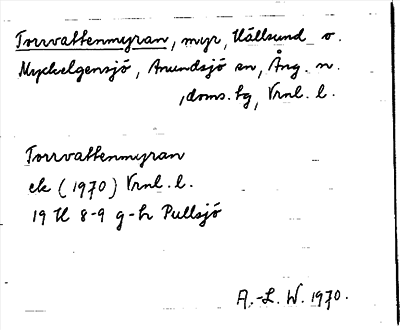 Torrvattenmyran, myr, Källsund o.
Myckelgensjö, Anundsjö sn, Ång. n.
, doms. tg, Vrnl. l.
Torrvattenmyran
ek (1970) Vrnl. l.
19 H 8-9 g-h Pullsjö
A.-L. W. 1970.